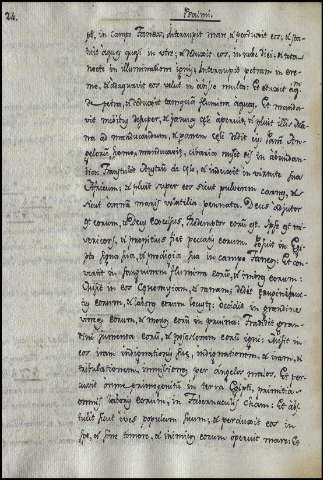 24. Psalmi.
pti, in campo Taneos, Interrupit mare, et perduxit eos, et sta-
tuit aquas quasi in utre; et deduxit eos, in nube diei; et tota
nocte in illuminatione ignis; Interrupit petram in ere-
mo, et adaquavit eos velut in abisso multa: Et eduxit aqs
de petra, et eduxit tamquam flumina aquas. Et manda-
vit nubibus desuper, et januas cæli aperuit, et pluit illis
na ad manducandum, et panem cæli dedit eis. Panem An-
gelorum homo, manducavit, cibaria misit eis in abundan-
tia. Transtulit Austrum de cælo, et induxit in virtute sua
Africum; et pluit super eos sicut pulverem carnes, et
sicut arenam maris volatilia pennata. Deus adjutor
est eorum, et Deus excelsus, Redemptor eorum est. Ipse est mi-
sericors, et propitius fiet peccatis eorum. Posuit in Egi-
pto signa sua, et prodigia sua in campo Taneos: Et con-
vertit in sanguinem flumina eorum, et imbres eorum:
Misit in eos et ranam; dedit
eorum, et labores eorum locustæ: occidit in grandine
vineas eorum, et moros eorum in pruina: Tradidit gran-
dini jumenta eorum, et possesionem eorum igni: Misit in
eos iram indignationis suæ, indignationem, et iram, et
tribulationem, immisiones per angelos malos. Et per-
cusit omne primogenitum in terra Egipti, primitias
omnis laboris eorum, in Tabernaculis Cham: Et abs-
tulit sicut oves populum suum, et perduxit eos in
spe, et sine timore, et inimicos eorum operuit mare: Et